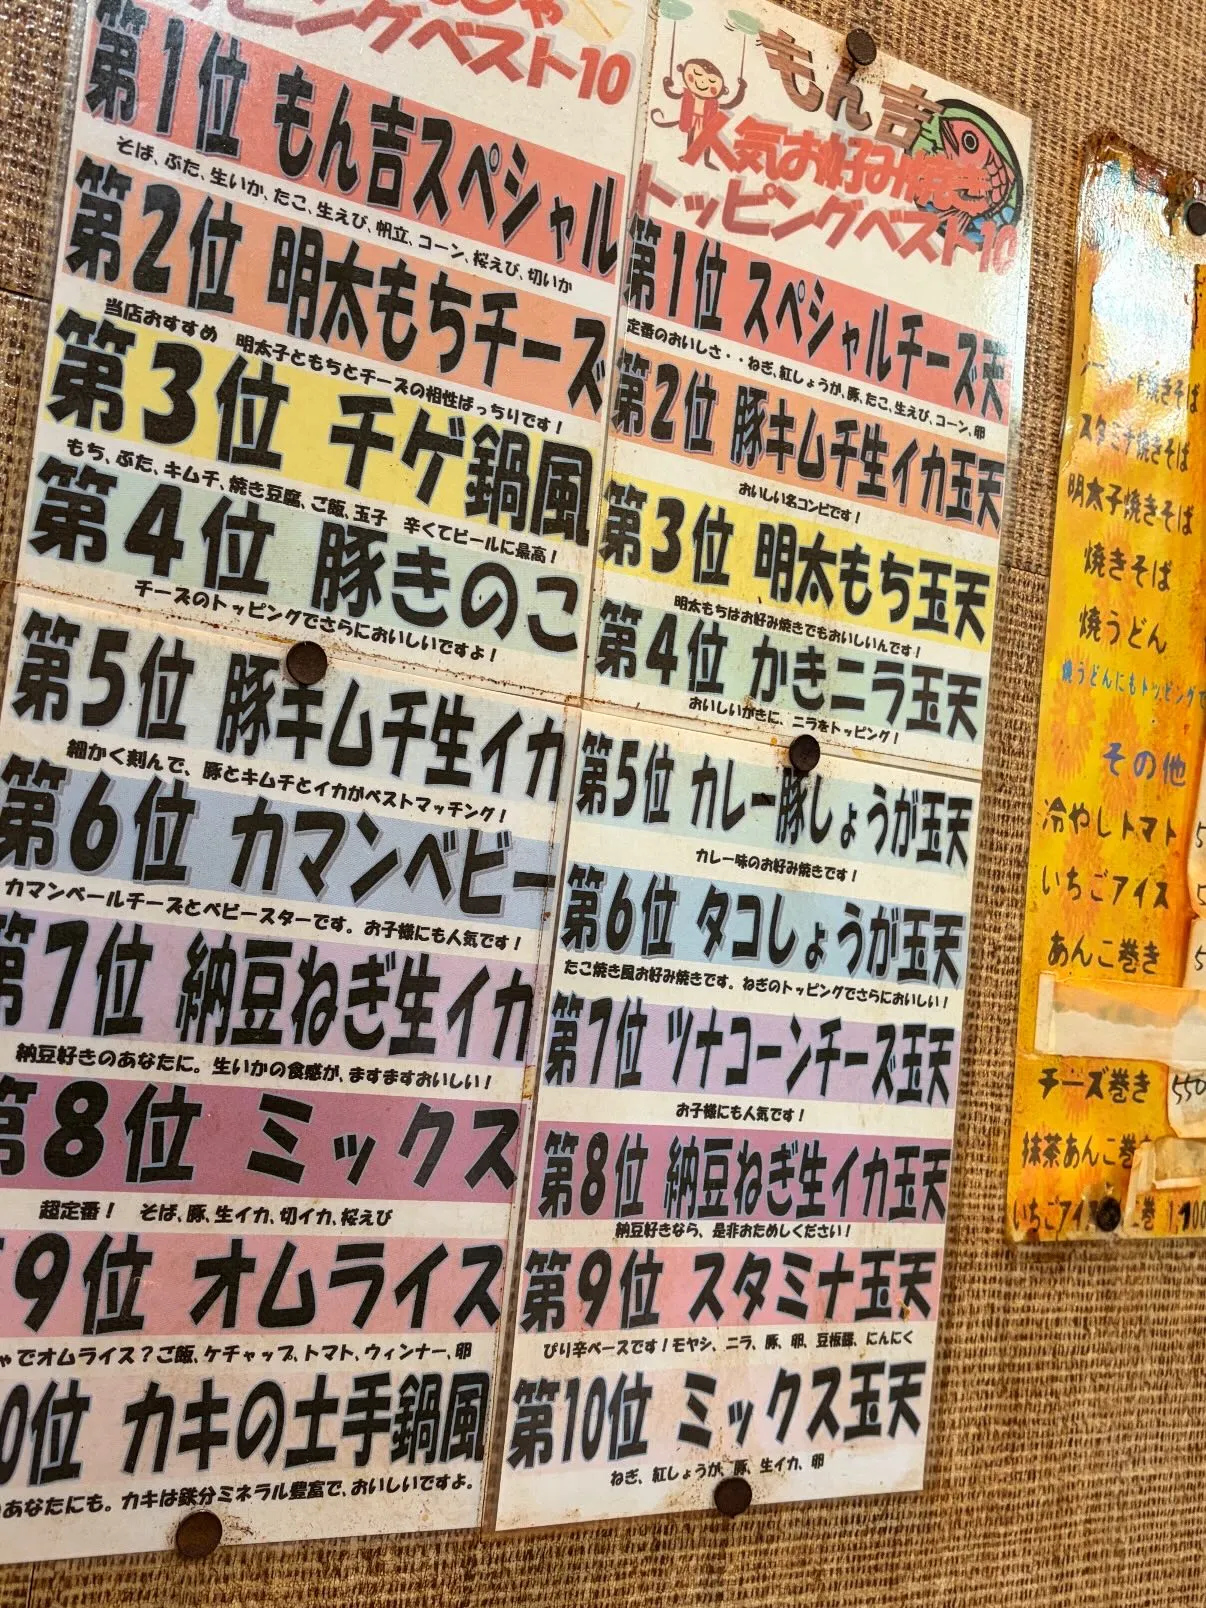 ベスト10
第1位 もん吉スペシャル
そば、ぶた、生いか、たこ、生えび、帆立、コーン、桜えび、切いか
第2位 明太もちチーズ
当店おすすめ 明太子ともちとチーズの相性ばっちりです!
第3位 チゲ鍋風
もち、ぶた、キムチ、焼き豆腐、ご飯、玉子 辛くてビールに最高!
第4位 豚きのこ
チーズのトッピングでさらにおいしいですよ!
第5位 豚キムチ生イカ
細かく刻んで、豚とキムチとイカがベストマッチング!
第6位 カマンベビー
カマンベールチーズとベビースターです。お子様にも人気です!
第7位 納豆ねぎ生イカ
納豆好きのあなたに。生いかの食感が、ますますおいしい!
第8位 ミックス
超定番! そば、豚、生イカ、切イカ、桜えび
9位 オムライス
でオムライス?ご飯、ケチャップ、トマト、ウィンナー、卵
0位 カキの土手鍋風
あなたにも。カキは鉄分ミネラル豊富で、おいしいですよ。
もん吉
人気お好み焼き
トッピングベスト10
第1位 スペシャルチーズ天
定番のおいしさ・・ねぎ、紅しょうが、豚、たこ、生えび、コーン、卵
第2位 豚キムチ生イカ玉天
おいしい名コンビです!
第3位 明太もち玉天
明太もちはお好み焼きでもおいしいんです!
第4位 かきニラ玉天
おいしいがきに、ニラをトッピング!
第5位 カレー豚しょうが玉天
カレー味のお好み焼きです!
第6位 タコしょうが玉天
たこ焼き風お好み焼きです。ねぎのトッピングでさらにおいしい!
第7位 ツナコーンチーズ玉天
お子様にも人気です!
第8位 納豆ねぎ生イカ玉天
納豆好きなら、是非おためしください!
第9位 スタミナ玉天
ぴり辛ベースです!モヤシ、ニラ、豚、卵、豆板醤、にんにく
第10位 ミックス玉天
ねぎ、紅しょうが、豚、生イカ、卵
焼きそば
スタミナ焼きそば
明太子焼きそば
焼きそば
焼うどん
焼うどんにもトッピングで
その他
冷やしトマト 5
いちごアイス 5
あんこ巻き 5
チーズ巻き 550
抹茶あんこ巻き
いちごアイス 巻 1,100